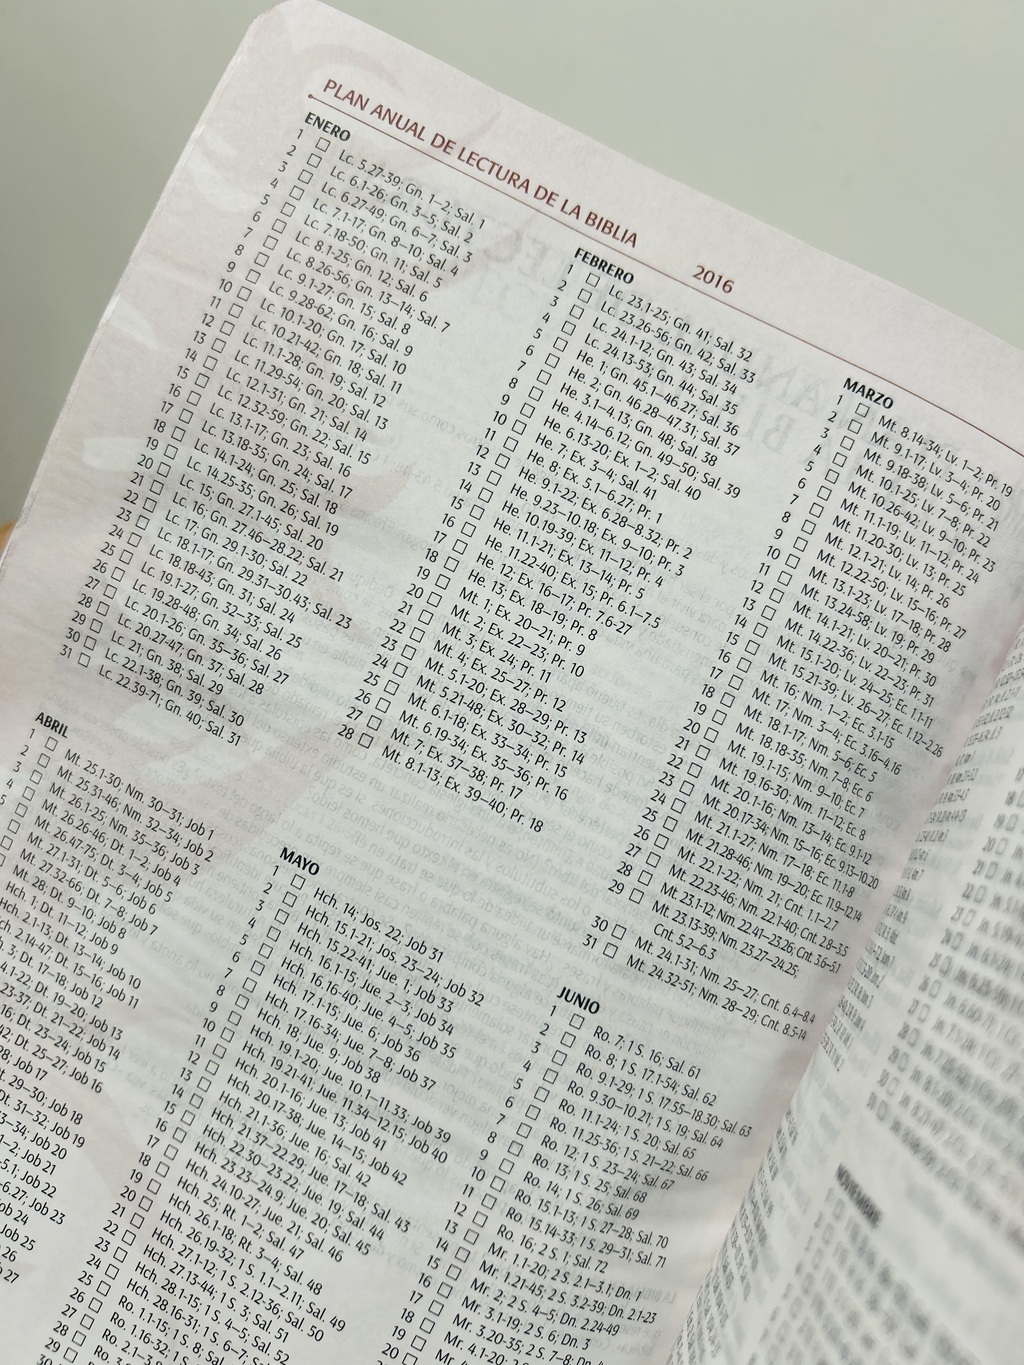 PLAN ANUAL DE LECTURA DE LA BIBLIA 2016
ENERO
1 □ Lc. 5.27-39; Gn. 1–2; Sal. 1
2 □ Lc. 6.1-26; Gn. 3–5; Sal. 2
3 □ Lc. 6.27-49; Gn. 6–7; Sal. 3
4 □ Lc. 7.1-17; Gn. 8–10; Sal. 4
5 □ Lc. 7.18-50; Gn. 11; Sal. 5
6 □ Lc. 8.1-25; Gn. 12; Sal. 6
7 □ Lc. 8.26-56; Gn. 13–14; Sal. 7
8 □ Lc. 9.1-27; Gn. 15; Sal. 8
9 □ Lc. 9.28-62; Gn. 16; Sal. 9
10 □ Lc. 10.1-20; Gn. 17; Sal. 10
11 □ Lc. 10.21-42; Gn. 18; Sal. 11
12 □ Lc. 11.1-28; Gn. 19; Sal. 12
13 □ Lc. 11.29-54; Gn. 20; Sal. 13
14 □ Lc. 12.1-31; Gn. 21; Sal. 14
15 □ Lc. 12.32-59; Gn. 22; Sal. 15
16 □ Lc. 13.1-17; Gn. 23; Sal. 16
17 □ Lc. 13.18-35; Gn. 24; Sal. 17
18 □ Lc. 14.1-24; Gn. 25; Sal. 18
19 □ Lc. 14.25-35; Gn. 26; Sal. 19
20 □ Lc. 15; Gn. 27.1-45; Sal. 20
21 □ Lc. 16; Gn. 27.46–28.22; Sal. 21
22 □ Lc. 17; Gn. 29.1-30; Sal. 22
23 □ Lc. 18.1-17; Gn. 29.31–30.43; Sal. 23
24 □ Lc. 18.18-43; Gn. 31; Sal. 24
25 □ Lc. 19.1-27; Gn. 32–33; Sal. 25
26 □ Lc. 19.28-48; Gn. 34; Sal. 26
27 □ Lc. 20.1-26; Gn. 35–36; Sal. 27
28 □ Lc. 20.27-47; Gn. 37; Sal. 28
29 □ Lc. 21; Gn. 38; Sal. 29
30 □ Lc. 22.1-38; Gn. 39; Sal. 30
31 □ Lc. 22.39-71; Gn. 40; Sal. 31
FEBRERO
1 □ Lc. 23.1-25; Gn. 41; Sal. 32
2 □ Lc. 23.26-56; Gn. 42; Sal. 33
3 □ Lc. 24.1-12; Gn. 43; Sal. 34
4 □ Lc. 24.13-53; Gn. 44; Sal. 35
5 □ He. 1; Gn. 45.1–46.27; Sal. 36
6 □ He. 2; Gn. 46.28–47.31; Sal. 37
7 □ He. 3.1–4.13; Gn. 48; Sal. 38
8 □ He. 4.14–6.12; Gn. 49–50; Sal. 39
9 □ He. 6.13-20; Ex. 1–2; Sal. 40
10 □ He. 7; Ex. 3–4; Sal. 41
11 □ He. 8; Ex. 5.1–6.27; Pr. 1
12 □ He. 9.1-22; Ex. 6.28–8.32; Pr. 2
13 □ He. 9.23–10.18; Ex. 9–10; Pr. 3
14 □ He. 10.19-39; Ex. 11–12; Pr. 4
15 □ He. 11.1-21; Ex. 13–14; Pr. 5
16 □ He. 11.22-40; Ex. 15; Pr. 6.1–7.5
17 □ He. 12; Ex. 16–17; Pr. 7.6-27
18 □ He. 13; Ex. 18–19; Pr. 8
19 □ Mt. 1; Ex. 20–21; Pr. 9
20 □ Mt. 2; Ex. 22–23; Pr. 10
21 □ Mt. 3; Ex. 24; Pr. 11
22 □ Mt. 4; Ex. 25–27; Pr. 12
23 □ Mt. 5.1-20; Ex. 28–29; Pr. 13
24 □ Mt. 5.21-48; Ex. 30–32; Pr. 14
25 □ Mt. 6.1-18; Ex. 33–34; Pr. 15
26 □ Mt. 6.19-34; Ex. 35–36; Pr. 16
27 □ Mt. 7; Ex. 37–38; Pr. 17
28 □ Mt. 8.1-13; Ex. 39–40; Pr. 18
MARZO
1 □ Mt. 8.14-34; Lv. 1–2; Pr. 19
2 □ Mt. 9.1-17; Lv. 3–4; Pr. 20
3 □ Mt. 9.18-38; Lv. 5–6; Pr. 21
4 □ Mt. 10.1-25; Lv. 7–8; Pr. 22
5 □ Mt. 10.26-42; Lv. 9–10; Pr. 23
6 □ Mt. 11.1-19; Lv. 11–12; Pr. 24
7 □ Mt. 11.20-30; Lv. 13; Pr. 25
8 □ Mt. 12.1-21; Lv. 14; Pr. 26
9 □ Mt. 12.22-50; Lv. 15–16; Pr. 27
10 □ Mt. 13.1-23; Lv. 17–18; Pr. 28
11 □ Mt. 13.24-58; Lv. 19; Pr. 29
12 □ Mt. 14.1-21; Lv. 20–21; Pr. 30
13 □ Mt. 14.22-36; Lv. 22–23; Pr. 31
14 □ Mt. 15.1-20; Lv. 24–25; Ec. 1.1-11
15 □ Mt. 15.21-39; Lv. 26–27; Ec. 1.12–2.26
16 □ Mt. 16; Nm. 1–2; Ec. 3.1-15
17 □ Mt. 17; Nm. 3–4; Ec. 3.16–4.16
18 □ Mt. 18.1-17; Nm. 5–6; Ec. 5
19 □ Mt. 18.18-35; Nm. 7–8; Ec. 6
20 □ Mt. 19.1-15; Nm. 9–10; Ec. 7
21 □ Mt. 19.16-30; Nm. 11–12; Ec. 8
22 □ Mt. 20.1-16; Nm. 13–14; Ec. 9.1-12
23 □ Mt. 20.17-34; Nm. 15–16; Ec. 9.13–10.20
24 □ Mt. 21.1-27; Nm. 17–18; Ec. 11.1-8
25 □ Mt. 21.28-46; Nm. 19–20; Ec. 11.9–12.14
26 □ Mt. 22.1-22; Nm. 21; Cnt. 1.1–2.7
27 □ Mt. 22.23-46; Nm. 22.1-40; Cnt. 2.8–3.5
28 □ Mt. 23.1-12; Nm. 22.41–23.26; Cnt. 3.6–5.1
29 □ Mt. 23.13-39; Nm. 23.27–24.25;
Cnt. 5.2–6.3
30 □ Mt. 24.1-31; Nm. 25–27; Cnt. 6.4–8.4
31 □ Mt. 24.32-51; Nm. 28–29; Cnt. 8.5-14
ABRIL
1 □ Mt. 25.1-30; Nm. 30–31; Job 1
2 □ Mt. 25.31-46; Nm. 32–34; Job 2
3 □ Mt. 26.1-25; Nm. 35–36; Job 3
4 □ Mt. 26.26-46; Dt. 1–2; Job 4
5 □ Mt. 26.47-75; Dt. 3–4; Job 5
Mt. 27.1-31; Dt. 5–6; Job 6
Mt. 27.32-66; Dt. 7–8; Job 7
Mt. 28; Dt. 9–10; Job 8
Hch. 1; Dt. 11–12; Job 9
2.1-13; Dt. 13–14; Job 10
2.14-47; Dt. 15–16; Job 11
3; Dt. 17–18; Job 12
4.1-22; Dt. 19–20; Job 13
23-37; Dt. 21–22; Job 14
16; Dt. 23–24; Job 15
42; Dt. 25–27; Job 16
28; Job 17
29–30; Job 18
Dt. 31–32; Job 19
3–34; Job 20
1–2; Job 21
5.1; Job 22
6.27; Job 23
Job 24
Job 25
26
27
MAYO
1 □ Hch. 14; Jos. 22; Job 31
2 □ Hch. 15.1-21; Jos. 23–24; Job 32
3 □ Hch. 15.22-41; Jue. 1; Job 33
4 □ Hch. 16.1-15; Jue. 2–3; Job 34
5 □ Hch. 16.16-40; Jue. 4–5; Job 35
6 □ Hch. 17.1-15; Jue. 6; Job 36
7 □ Hch. 17.16-34; Jue. 7–8; Job 37
8 □ Hch. 18; Jue. 9; Job 38
9 □ Hch. 19.1-20; Jue. 10.1–11.33; Job 39
10 □ Hch. 19.21-41; Jue. 11.34–12.15; Job 40
11 □ Hch. 20.1-16; Jue. 13; Job 41
12 □ Hch. 20.17-38; Jue. 14–15; Job 42
13 □ Hch. 21.1-36; Jue. 16; Sal. 42
14 □ Hch. 21.37–22.29; Jue. 17–18; Sal. 43
15 □ Hch. 22.30–23.22; Jue. 19; Sal. 44
16 □ Hch. 23.23–24.9; Jue. 20; Sal. 45
17 □ Hch. 24.10-27; Jue. 21; Sal. 46
18 □ Hch. 25; Rt. 1–2; Sal. 47
19 □ Hch. 26.1-18; Rt. 3–4; Sal. 48
20 □ Hch. 26.19-32; 1 S. 1.1–2.11; Sal. 49
21 □ Hch. 27.1-12; 1 S. 2.12-36; Sal. 50
22 □ Hch. 27.13-44; 1 S. 3; Sal. 51
23 □ Hch. 28.1-15; 1 S. 4–5; Sal. 52
24 □ Hch. 28.16-31; 1 S. 6–7;
25 □ Ro. 1.1-15; 1 S. 8;
26 □ Ro. 1.16-32; 1 S.
27 □ Ro. 2.1–3
28 □ Ro. 3
29 □
JUNIO
1 □ Ro. 7; 1 S. 16; Sal. 61
2 □ Ro. 8; 1 S. 17.1-54; Sal. 62
3 □ Ro. 9.1-29; 1 S. 17.55–18.30; Sal. 63
4 □ Ro. 9.30–10.21; 1 S. 19; Sal. 64
5 □ Ro. 11.1-24; 1 S. 20; Sal. 65
6 □ Ro. 11.25-36; 1 S. 21–22; Sal. 66
7 □ Ro. 12; 1 S. 23–24; Sal. 67
8 □ Ro. 13; 1 S. 25; Sal. 68
9 □ Ro. 14; 1 S. 26; Sal. 69
10 □ Ro. 15.1-13; 1 S. 27–28; Sal. 70
11 □ Ro. 15.14-33; 1 S. 29–31; Sal. 71
12 □ Ro. 16; 2 S. 1; Sal. 72
13 □ Mr. 1.1-20; 2 S. 2.1–3.1; Dn. 1
14 □ Mr. 1.21-45; 2 S. 3.2-39; Dn. 2.1-23
15 □ Mr. 2; 2 S. 4–5; Dn. 2.24-49
16 □ Mr. 3.1-19; 2 S. 6; Dn. 3
17 □ Mr. 3.20-35; 2 S. 7–8; Dn. 4
18 □ Mr. 4.1-20; 2 S.
19 □ Mr. 4
20 □
NOVIEMBRE